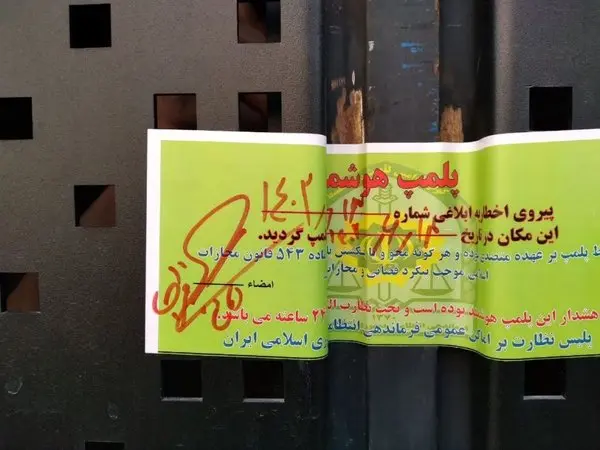 پلمپ هوشم
پیروی اخطاریه ابلاغی شماره ۱۴۰۲
این مکان در تاریخ مپ گردید.
ط پلمپ بر عهده متصدی بوده و هرگونه محو یا شکستن ماده ۵۴۳ قانون مجازات
اسلامی موجب پیگرد قضائی و مجازات
امضاء
هشدار این پلمپ هوشمند بوده است و تحت نظارت ۲۴ ساعته می باشد.
پلیس نظارت بر اماکن عمومی فرماندهی انتظامی ری اسلامی ایران